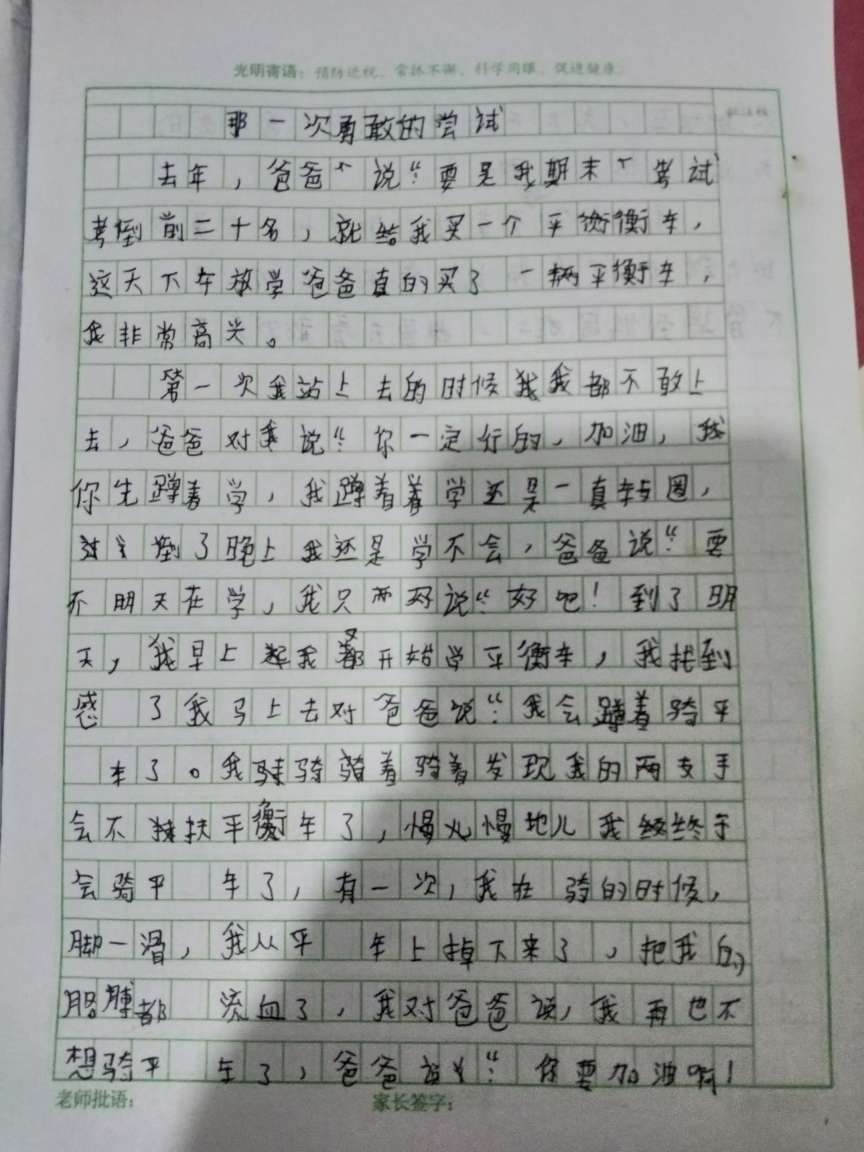 光明寄语：预防近视，常抓不懈，科学用眼，促进健康。
那一次勇敢的尝试
去年，爸爸说：“要是我期末考试
考倒前二十名，就给我买一个平衡衡车，
这天下午放学爸爸真的买了一辆平衡车，
我非常高兴。
第一次我站上去的时候我我都不敢上
去，爸爸对我说：“你一定行的，加油，我
你先蹲着学，我蹲着着学还是一真转圈，
倒了晚上我还是学不会，爸爸说：“要
不明天在学，我只两好说：“好吧！到了明
天，我早上起我都开始学平衡车，我找到
感 了我马上去对爸爸说：“我会蹲着骑平
车了。我骑骑着骑着发现我的两支手
会不扶扶平衡车了，慢儿慢地儿我终终于
会骑平 车了，有一次，我在骑的时候，
脚一滑，我从平 车上掉下来了，把我的
胳膊都 流血了，我对爸爸说，我再也不
想骑平 车了，爸爸说：“你要加油啊！
老师批语： 家长签字：